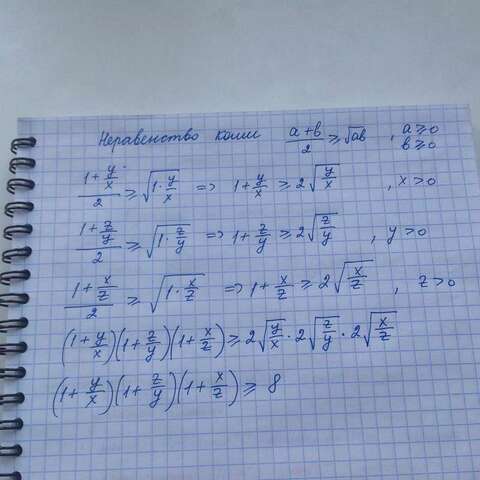 Неравенство Коши (a+b)/2 ≥ √ab , a ≥ 0 b ≥ 0
(1+y/x)/2 ≥ √(1·y/x) => 1+y/x ≥ 2√(y/x) , x > 0
(1+z/y)/2 ≥ √(1·z/y) => 1+z/y ≥ 2√(z/y) , y > 0
(1+x/z)/2 ≥ √(1·x/z) => 1+x/z ≥ 2√(x/z) , z > 0
(1+y/x)(1+z/y)(1+x/z) ≥ 2√(y/x) · 2√(z/y) · 2√(x/z)
(1+y/x)(1+z/y)(1+x/z) ≥ 8